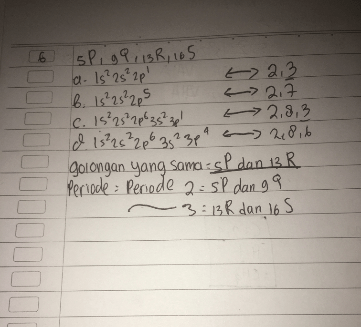 6 5P, 9Q, 13R, 16S
a. 1s² 2s² 2p¹ ↔ 2,3
b. 1s² 2s² 2p⁵ ↔ 2,7
c. 1s² 2s² 2p⁶ 3s² 3p¹ ↔ 2,8,3
d. 1s² 2s² 2p⁶ 3s² 3p⁴ ↔ 2,8,6
golongan yang sama = 5P dan 13R
Periode = Periode 2 = 5P dan 9Q
3 = 13R dan 16S